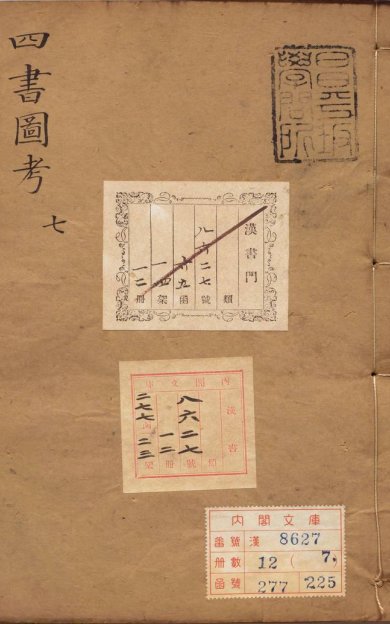 四書圖考
七
昌平坂
學問所
漢書門
類
八六二七號
函
架
一二冊
內閣文庫
漢書
類
八六二七號
一二冊
二七七函
二三架
內閣文庫
番號 漢 8627
冊數 12 ( 7 )
函號 277 225